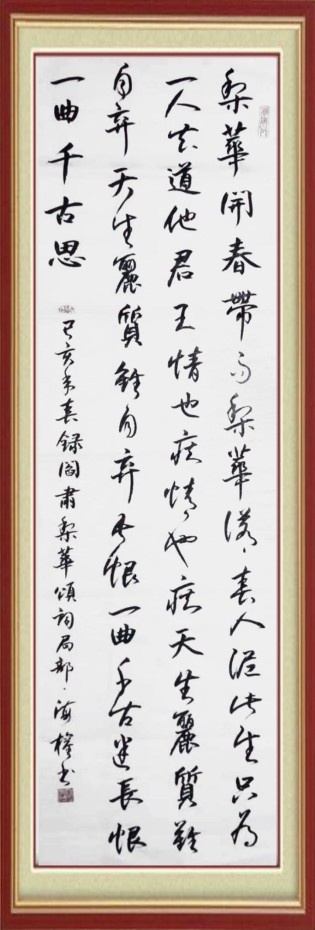 梨華開春帶雨梨華落、春入泥此生只為
一人去道他君王情也痴情、也痴天生麗質難
自弃天生麗質難自弃長恨一曲千古迷長恨
一曲千古思
己亥年春録閻肅梨華頌詞局部·海書